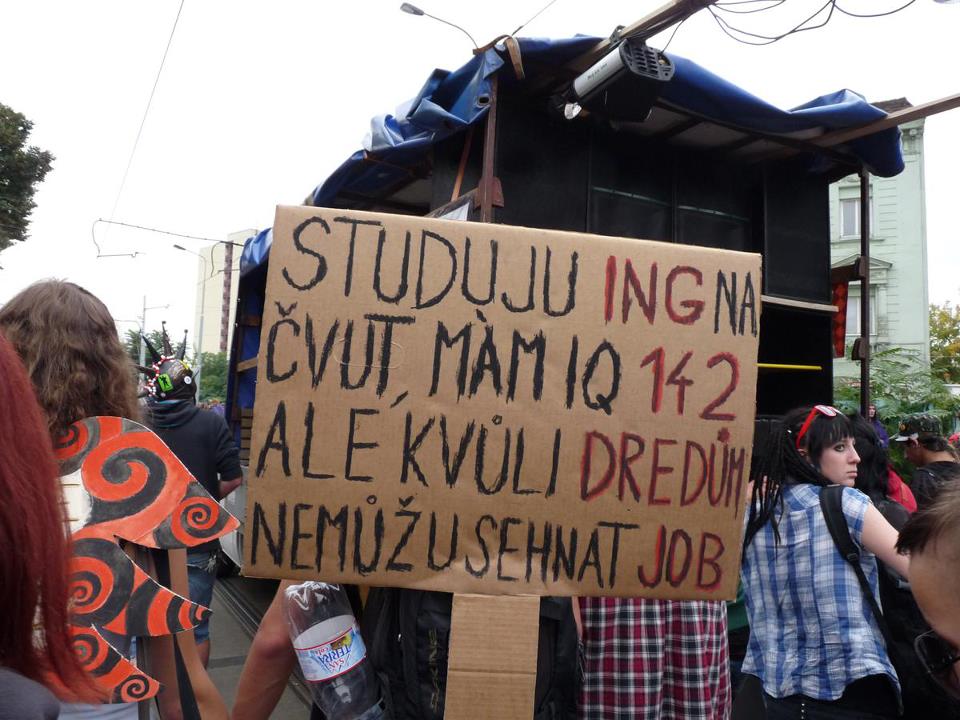 STUDUJU ING NA
ČVUT, MÀM IQ 142
ALE, KVŮLI DREDŮM
NEMŮŽU SEHNAT JOB
SAN
TERRA